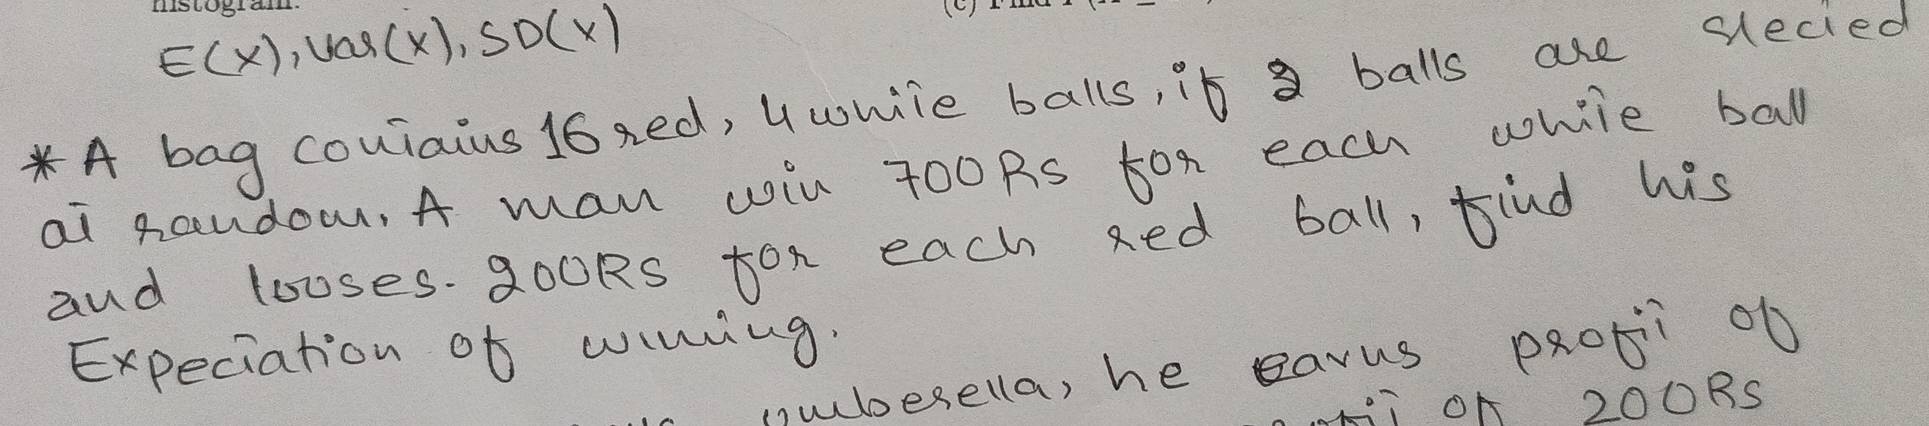 histogram.
E(X), Var(X), SD(X)
* A bag contains 16 red, 4 white balls, if 2 balls are slected
at random. A man win 700RS for each white ball
and looses. 200RS for each red ball, find his
Expectation of winning.
umberella, he earns profit of
200RS